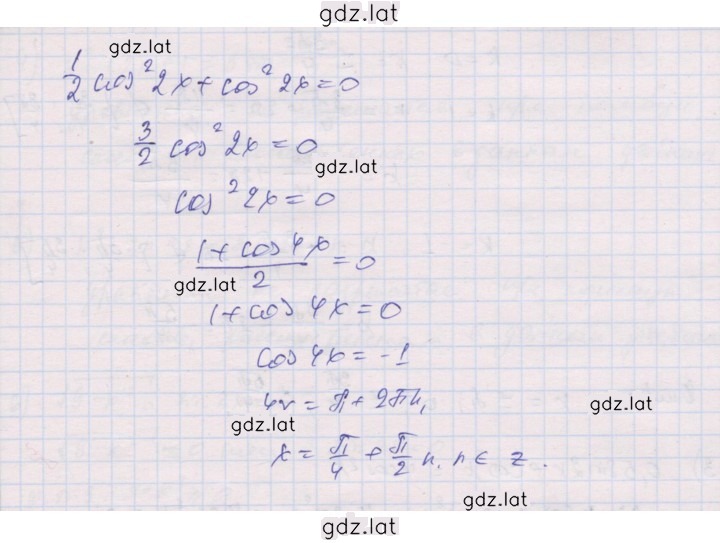 gdz.lat
gdz.lat
1/2 cos² 2x + cos² 2x = 0
3/2 cos² 2x = 0
gdz.lat
cos² 2x = 0
(1 + cos 4x)/2 = 0
gdz.lat
1 + cos 4x = 0
cos 4x = -1
4x = π + 2πn,
gdz.lat
gdz.lat
x = π/4 + π/2 n, n ∈ z.
gdz.lat
gdz.lat